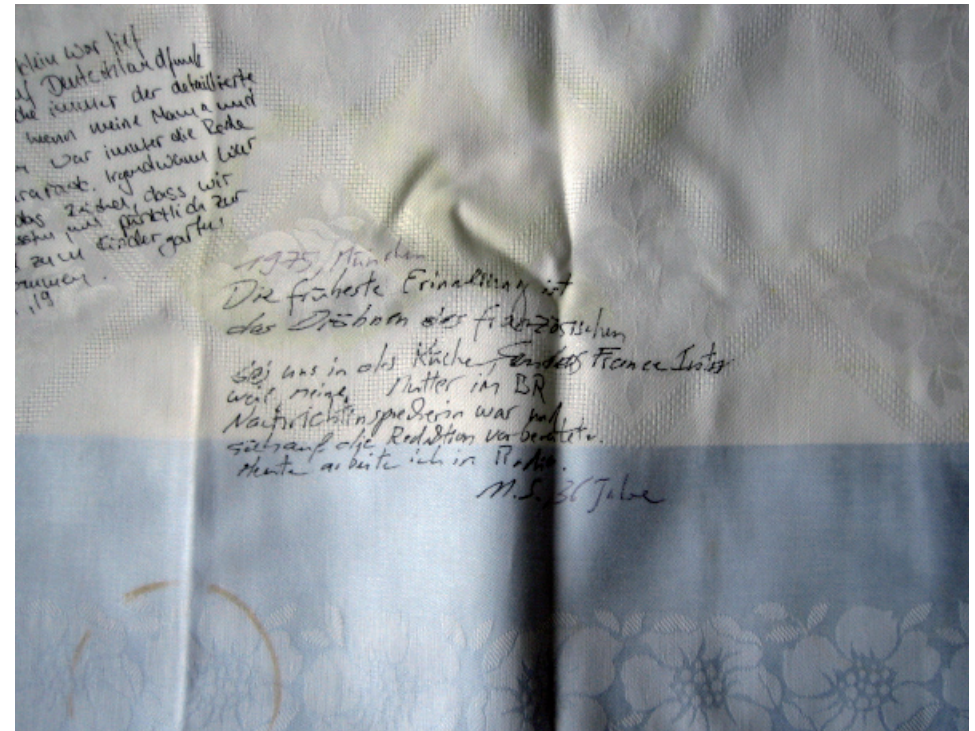 klein war lief
auf Deutschlandfunk
immer der detaillierte
wenn meine Mama und
war immer die Rede
Irgendwann war
das Zeichen, dass wir
pünktlich zur
zum Kindergarten
kommen.
, 19
1975, München
Die früheste Erinnerung ist
das Dröhnen des französischen
Senders France Inter
bei uns in der Küche,
weil meine Mutter im BR
Nachrichtensprecherin war und
sich auf die Redaktion vorbereitete.
Heute arbeite ich im Radio.
M.S., 36 Jahre